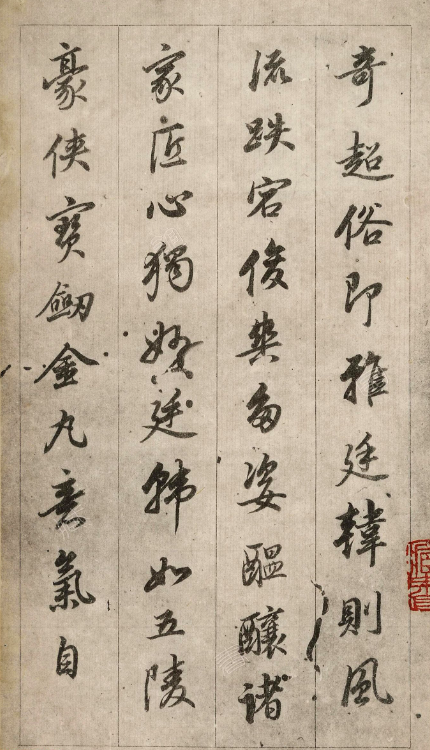 奇超俗即雅廷韓則風
流跌宕俊爽多姿醞釀諸
家匠心獨妙廷韓如五陵
豪俠寶劔金丸意氣自